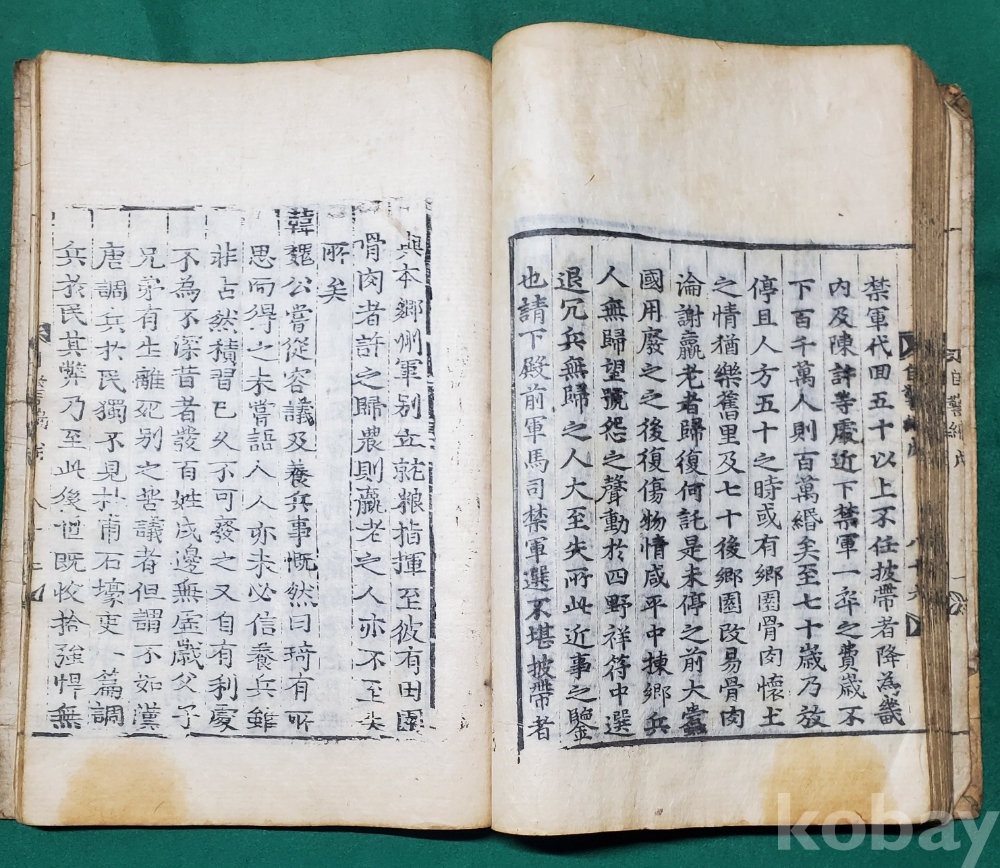 自警編戊
禁軍代田五十以上不任披帶者降為畿
內及陳許等處近下禁軍一卒之費歲不
下百千萬人則百萬緡矣至七十歲乃放
停且人方五十之時或有鄉園骨肉懷土
之情猶樂舊里及七十後鄉園改易骨肉
淪謝羸老者歸復何託是未停之前大蠹
國用廢之之後復傷物情咸平中揀鄉兵
人無歸望號怨之聲動於四野祥符中選
退冗兵無歸之人大至失所此近事之鑒
也請下殿前軍馬司禁軍選不堪披帶者
與本鄉州軍别立就粮指揮至彼有田園
骨肉者許之歸農則羸老之人亦不至失
所矣
韓魏公嘗從容議及養兵事慨然曰琦有所
思而得之未嘗語人人亦未必信養兵雖
非古然積習已久不可廢之又自有利處
不為不深昔者發百姓戍邊無虛歲父子
兄弟有生離死别之苦議者但謂不如漢
唐調兵於民獨不見杜甫石壕吏一篇調
兵於民其弊乃至此後世既收拾強悍無
kobay